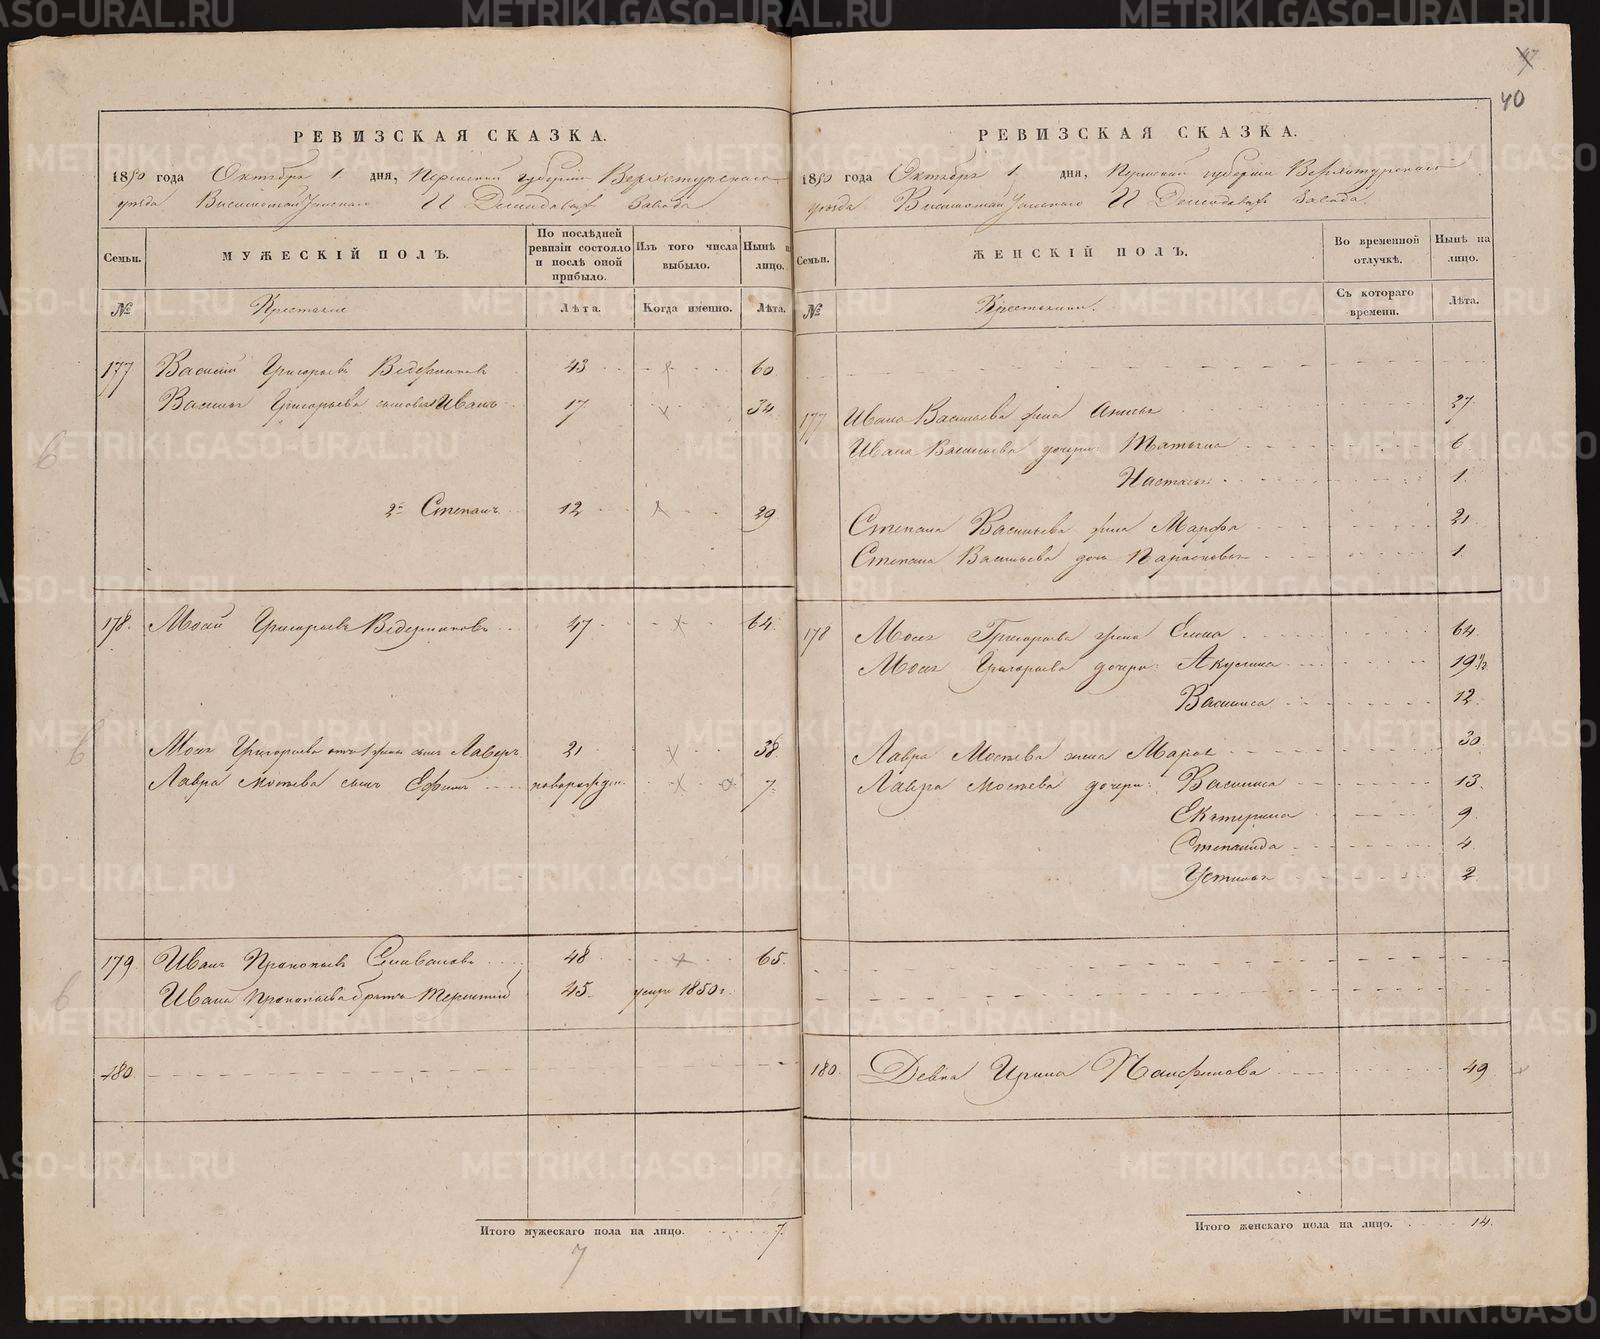 47
40
РЕВИЗСКАЯ СКАЗКА.
1850 года Октября 1 дня, Пермской губернiи Верхотурскаго
уѣзда Висимошайтанскаго Демидовыхъ завода
Семьи. МУЖЕСКIЙ ПОЛЪ. По послѣдней ревизiи состояло и послѣ оной прибыло. Изъ того числа выбыло. Нынѣ на лицо.
№ Крестьяне Лѣта. Когда именно. Лѣта.
177 Василiй Григорьевъ Ведерниковъ 43 60
Василья Григорьева сыновья Иванъ 17 34
2й Степанъ 12 29
178. Мосей Григорьевъ Ведерниковъ 47 64
Мосея Григорьева отъ 1 жены сынъ Лаверъ 21 38
Лавра Мосѣева сынъ Ефимъ новорожден. 7
179. Иванъ Прокопьевъ Селивановъ 48 65.
Ивана Прокопьева братъ Терентiй 45. умре 1850 г.
180.
Итого мужескаго пола на лицо. 7.
7
РЕВИЗСКАЯ СКАЗКА.
1850 года Октября 1 дня, Пермской губернiи Верхотурскаго
уѣзда Висимошайтанскаго Демидовыхъ завода.
Семьи. ЖЕНСКIЙ ПОЛЪ. Во временной отлучкѣ. Нынѣ на лицо.
№ Крестьянки. Съ котораго времени. Лѣта.
177 Ивана Васильева жена Анисья 27
Ивана Васильева дочери: Татьяна 6
Настасья 1.
Степана Васильева жена Марфа 21
Степана Васильева дочь Парасковья 1.
178 Мосея Григорьева жена Елена 64
Мосея Григорьева дочери: Акулина 19 1/2
Василиса 12
Лавра Мосѣева жена Марья 30
Лавра Мосѣева дочери: Василиса 13
Екатерина 9
Степанида 4
Устинья 2
180. Девка Ирина Панфилова 49
Итого женскаго пола на лицо. 14.
METRIKI.GASO-URAL.RU